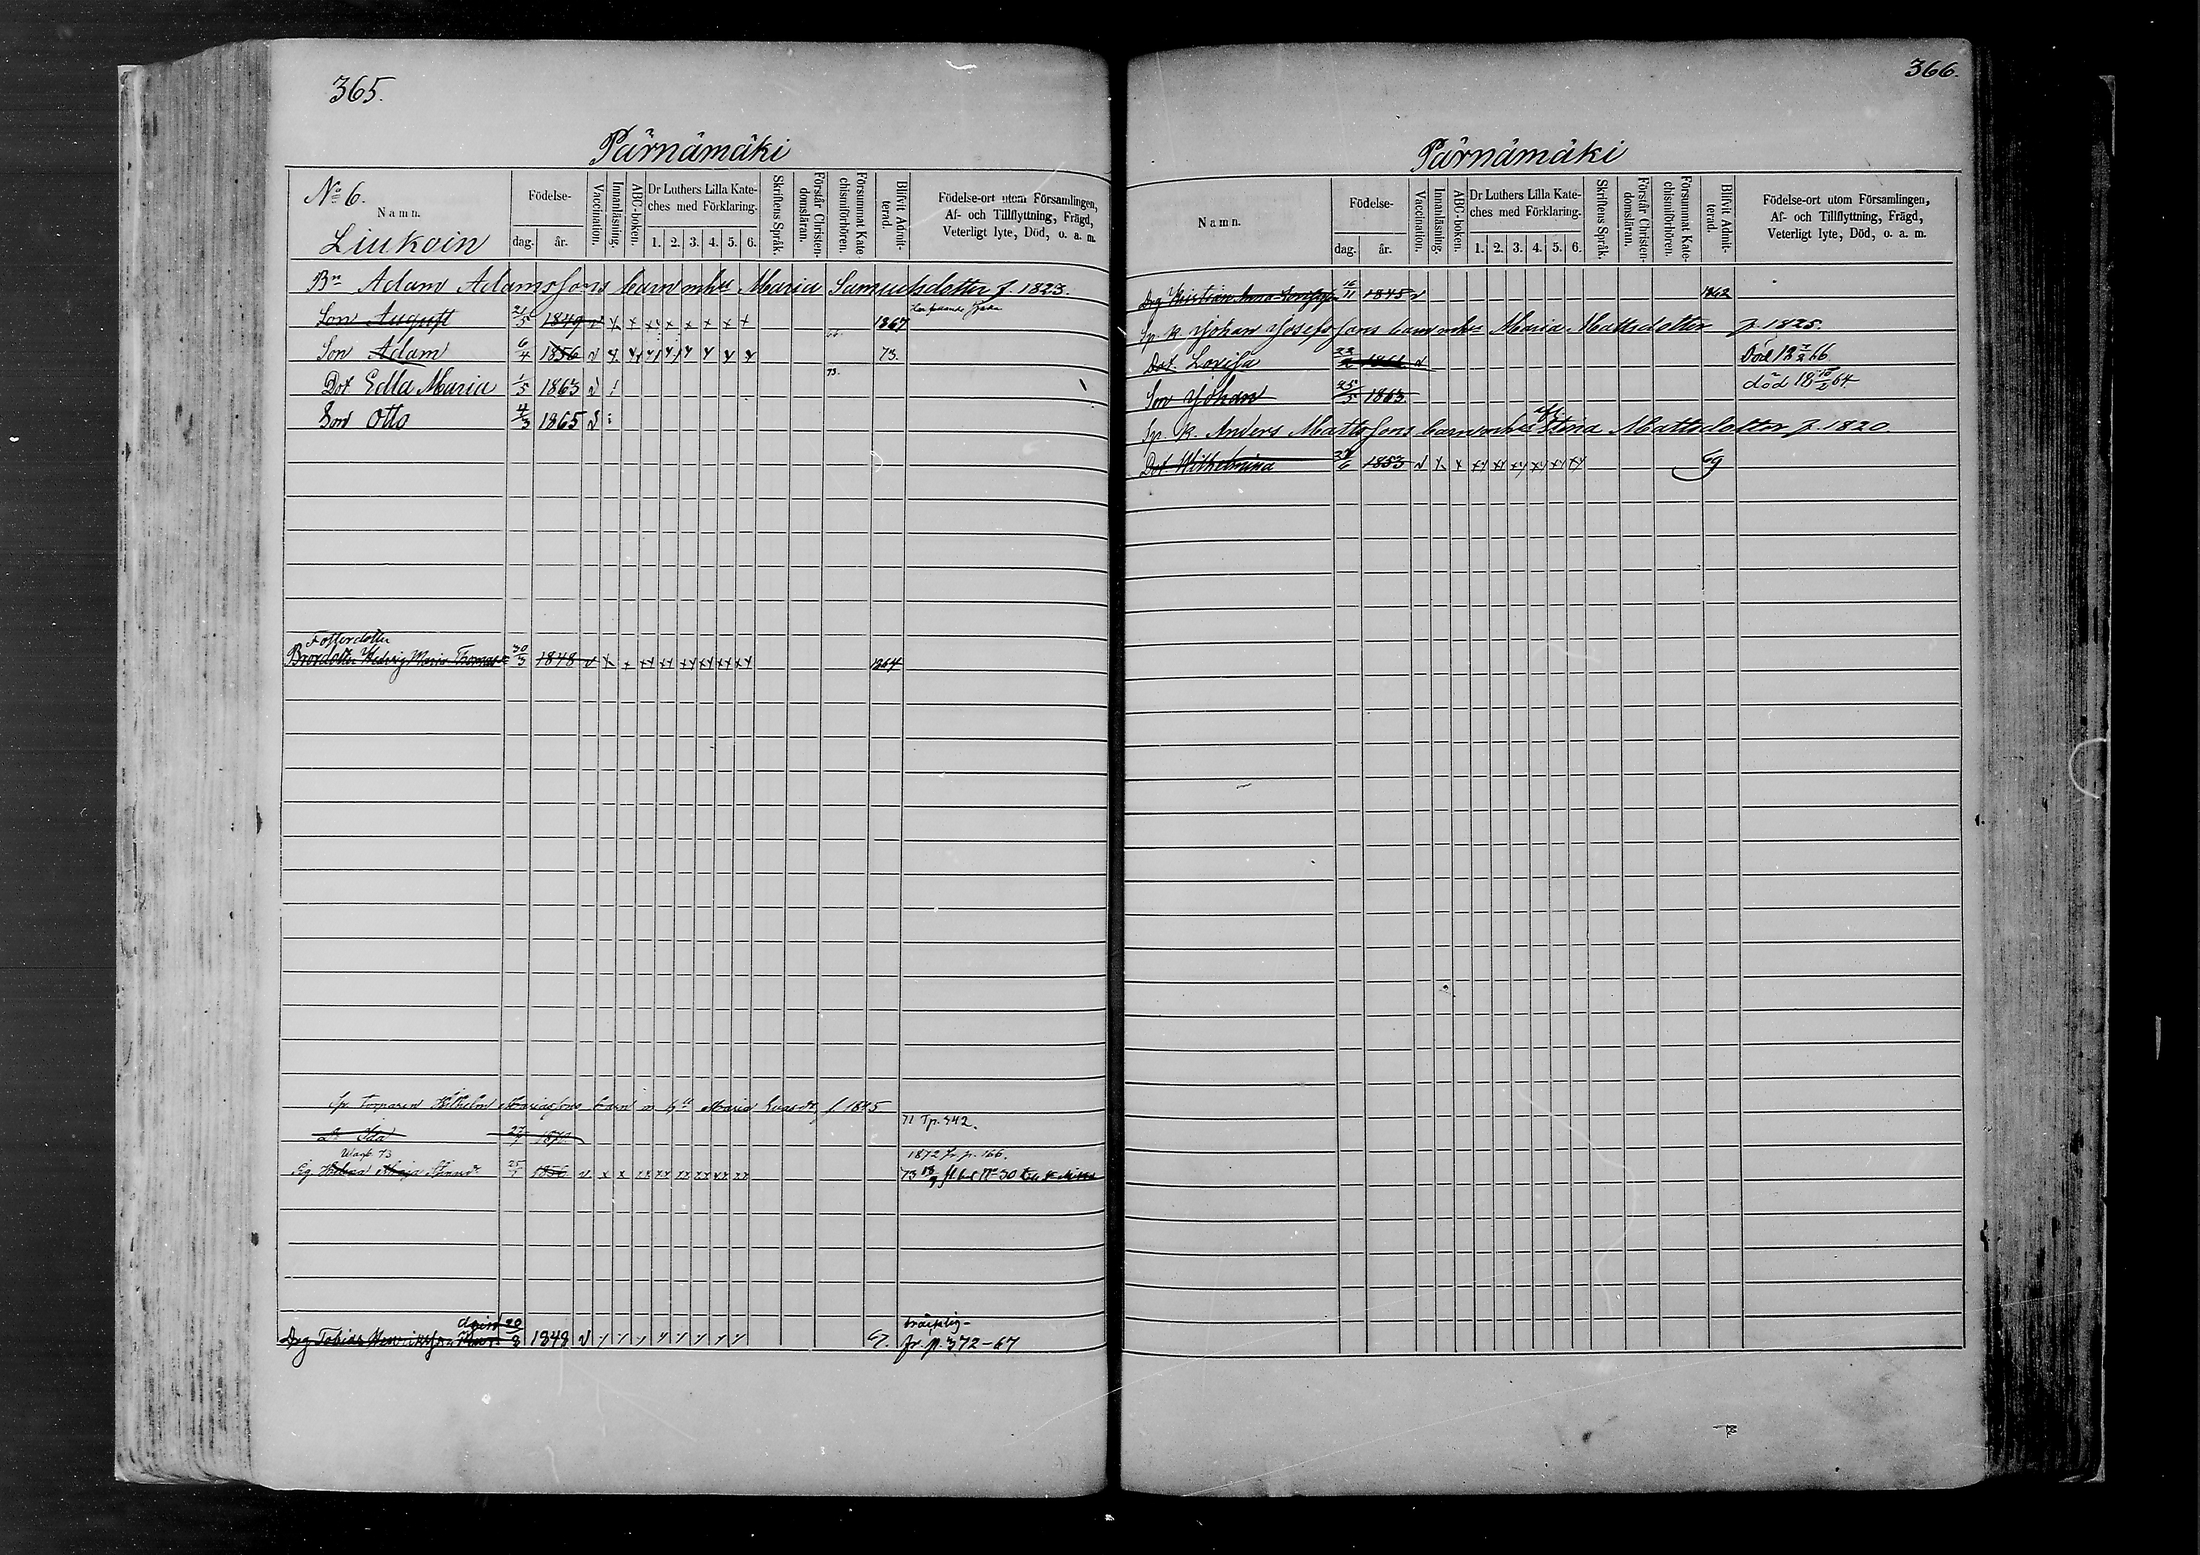 365.
Pärnämäki
No 6.
Namn.
Liukoin
Födelse-
dag. år.
Vaccination.
Innanläsning.
ABC-boken.
Dr Luthers Lilla Kate-
ches med Förklaring.
1. 2. 3. 4. 5. 6.
Skriftens Språk.
Förstår Christen-
domsläran.
Försummat Kate
chismiförhören.
Blifvit Admit-
terad.
Födelse-ort utom Församlingen,
Af- och Tillflyttning, Frägd,
Veterligt lyte, Död, o. a. m.
Bn Adam Adamssons barn m hu Maria Samuelsdotter f. 1823.
Son August 21/5 1849 v x x x x x x x x 1867
Son Adam 6/4 1856 v 73.
73.
Dot Edla Maria 1/5 1863 v
Son Otto 4/3 1865 v
Fotterdotter
Brordotter Hedvig Maria Thomasd 30/3 1848 v x x xx xx xx xx xx xx 1864
Sp Torparen Wilhelm barn m hu Maria f. 1845
71 Tp. 342.
Dr Ida 27 1870
1872 fr p. 166.
25/7 1856 v x x xx xx xx xx xx xx 73 No 30
20/8 1848 v fr. p. 372-67
366.
Pärnämäki
Namn.
Födelse-
dag. år.
Vaccination.
Innanläsning.
ABC-boken.
Dr Luthers Lilla Kate-
ches med Förklaring.
1. 2. 3. 4. 5. 6.
Skriftens Språk.
Förstår Christen-
domsläran.
Försummat Kate-
chismiförhören.
Blifvit Admit-
terad.
Födelse-ort utom Församlingen,
Af- och Tillflyttning, Frägd,
Veterligt lyte, Död, o. a. m.
11 1845 v 1862
Sp. k. Johan Josefssons barn m hu Maria Mattsdotter f. 1825.
Dot. Lovisa 22 v Död 18 7/2 66.
Son Johan 25/5 1863. död 18 64.
Sp. k. Anders Mattssons barn m hu Stina Mattsdotter f. 1820.
Dot. Wilhelmina 6 1853 v x x xx xx xx xx xx xx 69